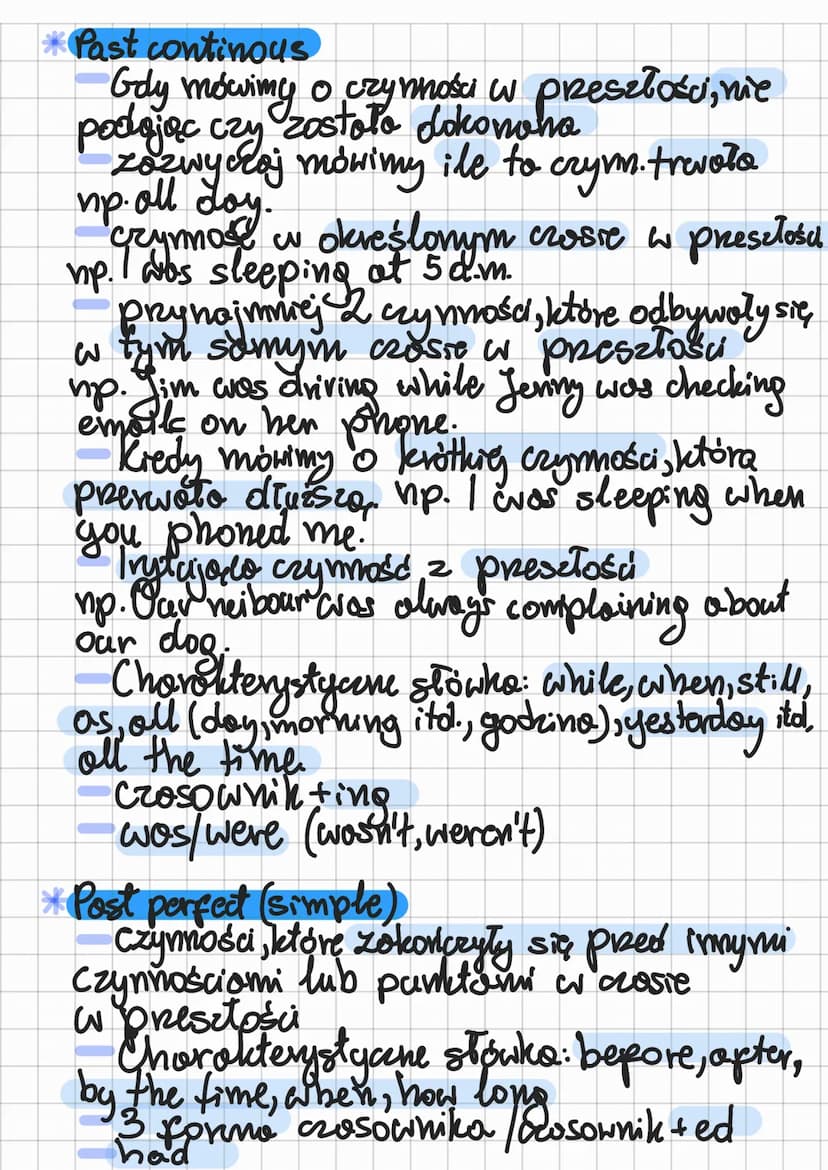 * Past continous
- Gdy mówimy o czynności w przeszłości, nie
podając czy została dokonana
- zazwyczaj mówimy ile to czyn. trwała
np. all day.
- czynność w określonym czasie w przeszłości
np. I was sleeping at 5 a.m.
- przynajmniej 2 czynności, które odbywały się
w tym samym czasie w przeszłości
np. Jim was driving while Jenny was checking
emails on her phone.
- Kiedy mówimy o krótkiej czynności, która
przerwała dłuższą. np. I was sleeping when
you phoned me.
- Irytująca czynność z przeszłości
np. Our neibour was always complaining about
our dog.
- Charakterystyczne słówka: while, when, still,
as, all (day, morning itd., godzina), yesterday itd,
all the time.
- czasownik + ing
- was/were (wasn't, weren't)
* Past perfect (simple)
- Czynności, które zakończyły się przed innymi
czynnościami lub punktami w czasie
w przeszłości
- Charakterystyczne słówka: before, after,
by the time, when, how long
- 3 forma czasownika / czasownik + ed
- had